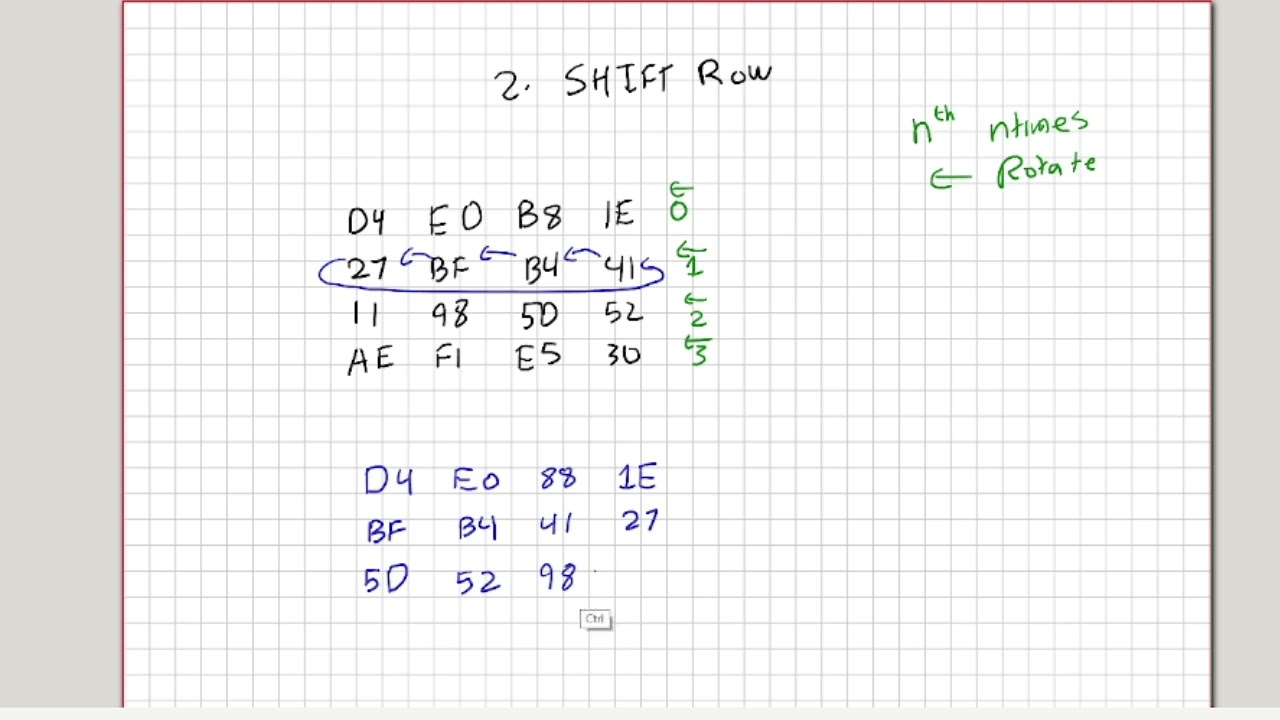 2. SHIFT Row
nth ntimes
← Rotate
D4 E0 B8 1E 0
27 BF B4 41 1
11 98 5D 52 2
AE F1 E5 30 3
D4 E0 88 1E
BF B4 41 27
5D 52 98
Ctrl